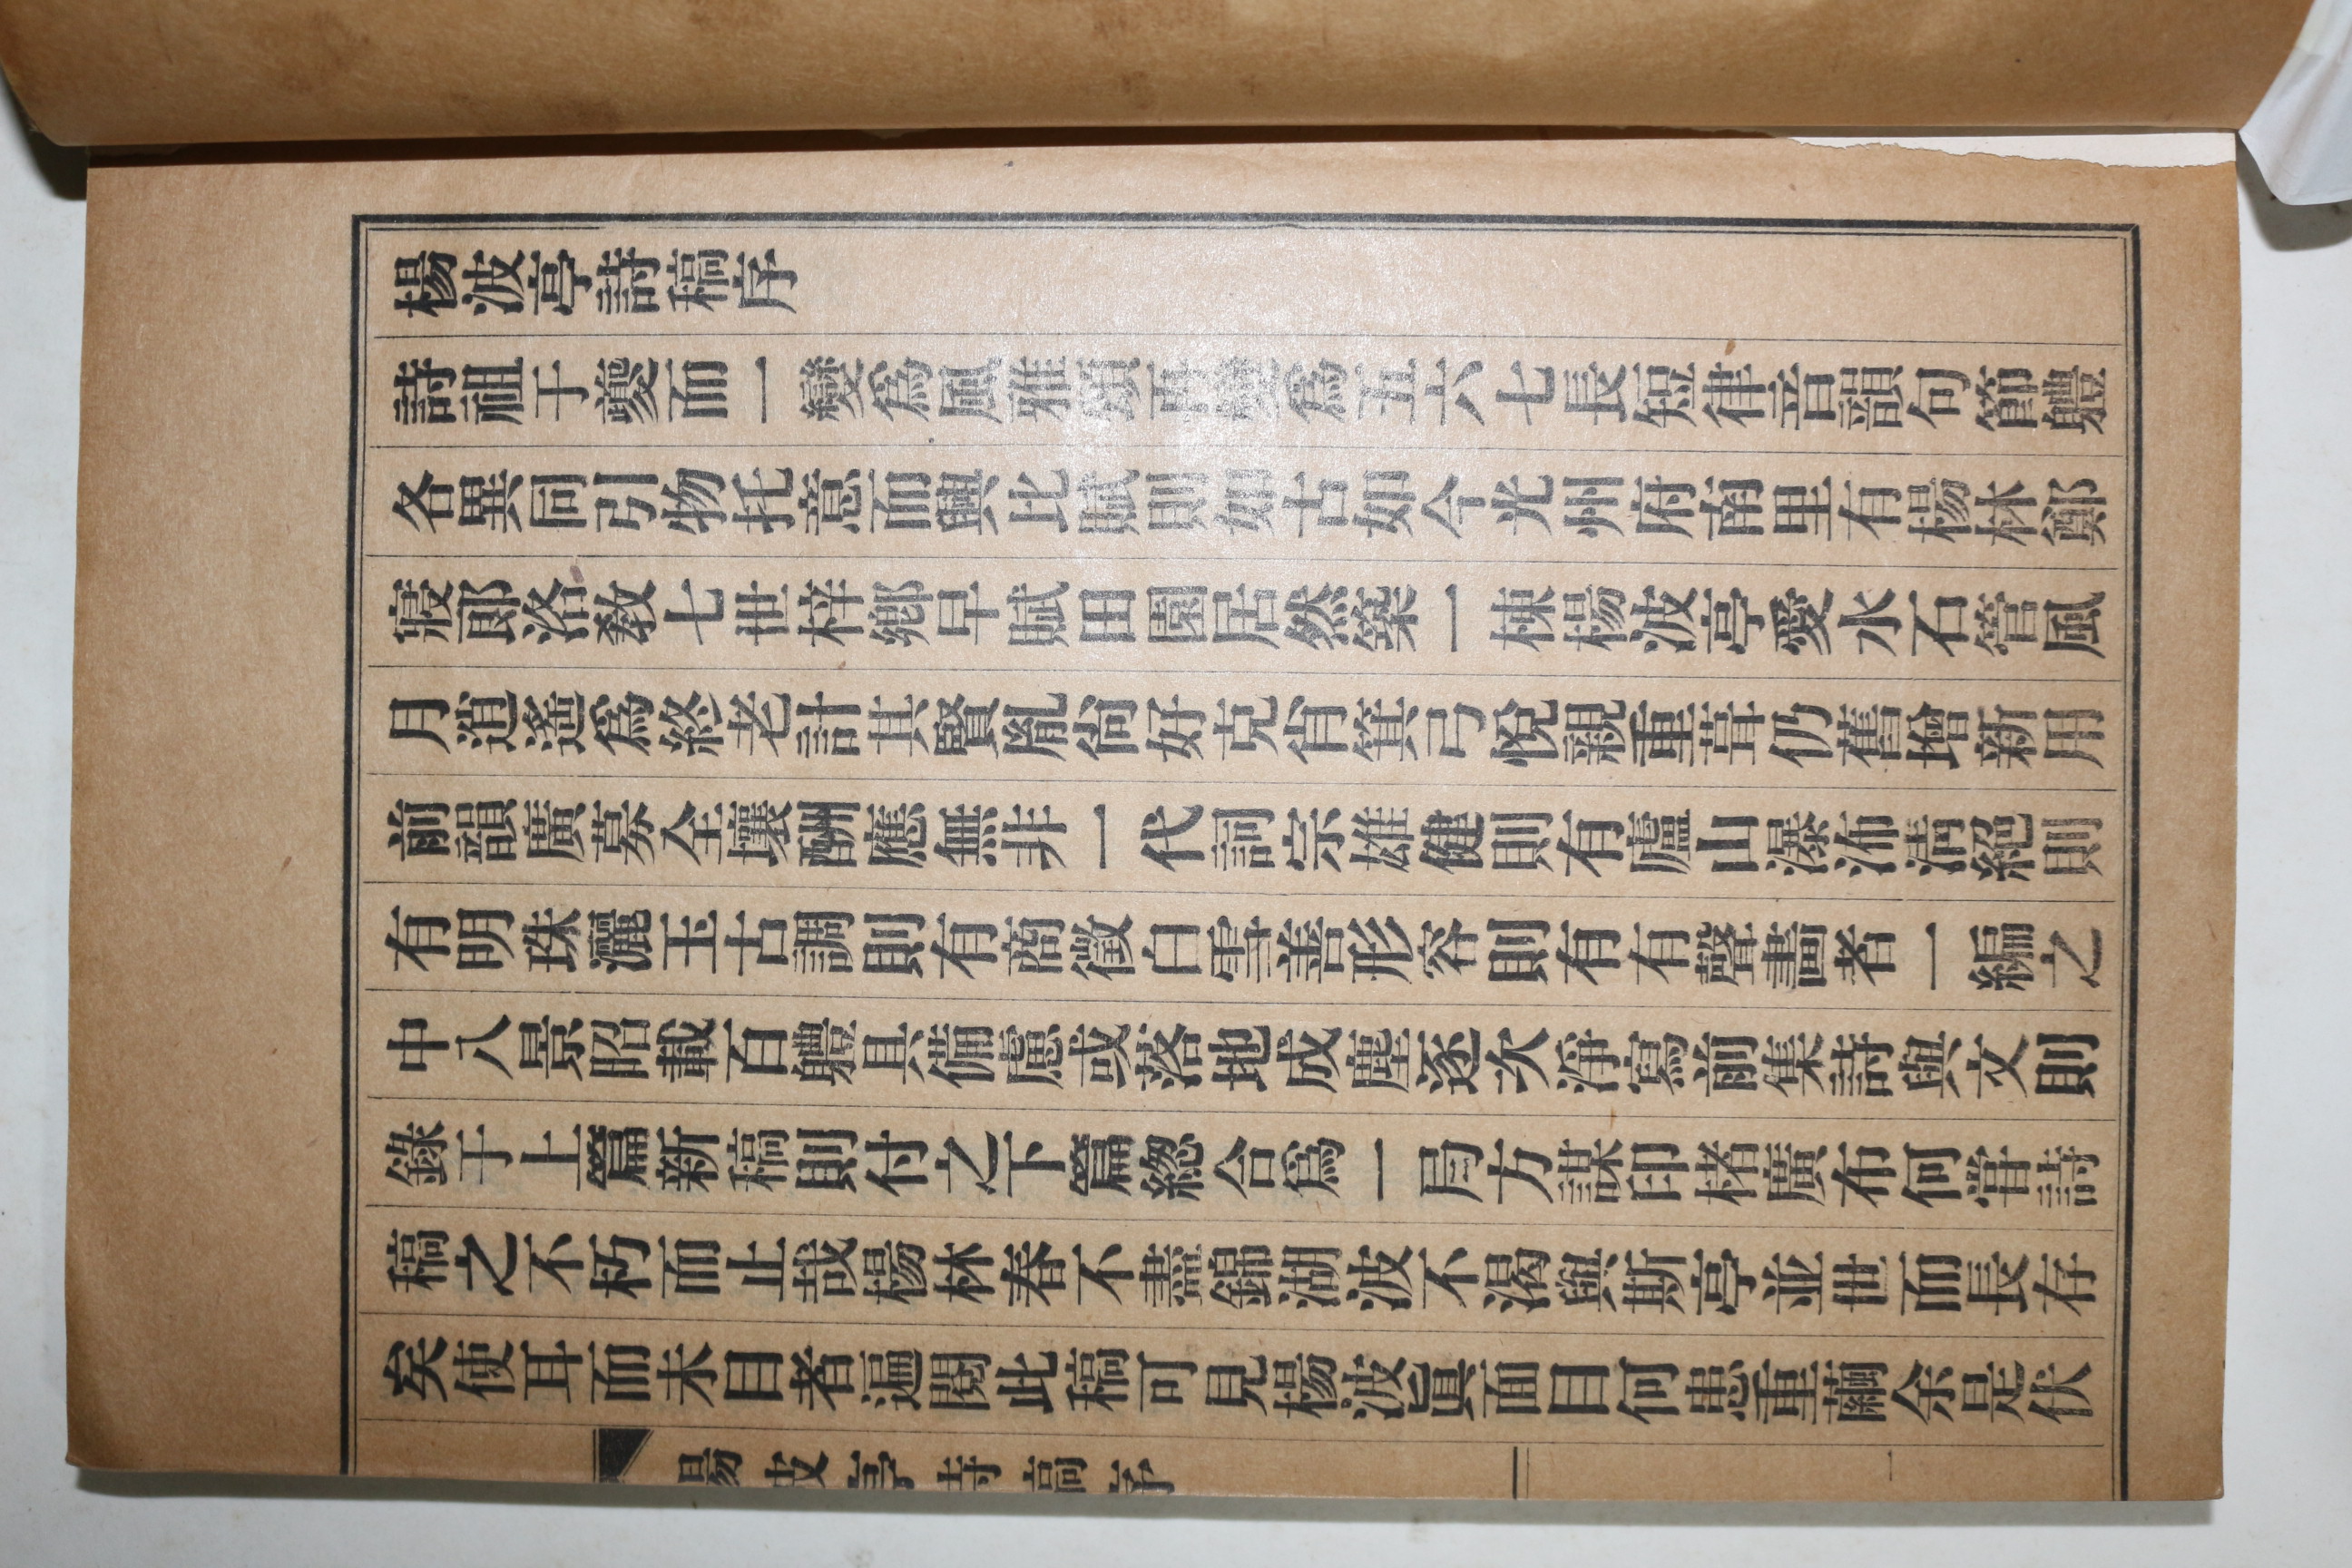 楊波亭詩稿序
詩祖于夔而一變爲風雅頌再變爲五六七長短律音韻句節軆
各異同引物托意而興比賦則如古如今光州府南里有楊林鄭
寢郞洛敎七世梓鄕早賦田園居然築一棟楊波亭愛水石管風
月逍遙爲終老計其賢胤尙好克肖箕弓悅親重葺仍舊增新用
前韻廣募全壤酬應無非一代詞宗雄健則有廬山瀑沛淸絕則
有明珠灑玉古調則有商徵白雪善形容則有有聲畵者一編之
中八景昭載百軆具備慮或落地成塵逐次淨寫前集詩與文則
錄于上篇新稿則付之下篇緫合爲一局方謀印楮廣布何嘗詩
稿之不朽而止哉楊林春不盡錦湖波不渴與斯亭並世而長存
矣使耳而未目者遍閱此稿可見楊波眞面目何患重繭余是伏
楊波亭詩稿序
一